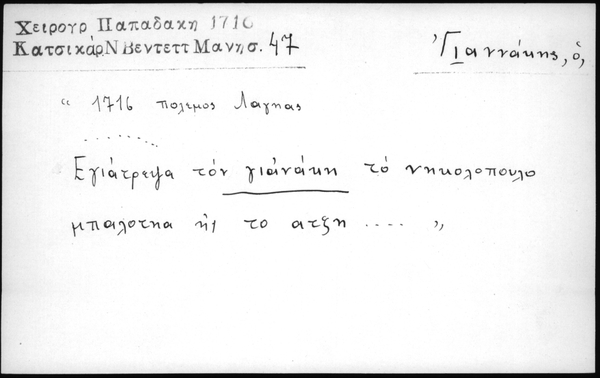 Χειρογρ Παπαδακη 1716
Κατσικάρ Ν Βεντεττ Μανησ. 47
Γιαννάκης, ὁ,
“ 1716 πολεμος Λαγηας
. . . . . . . .
Εγιάτρεψα τόν γιὰνάκη τό νηκολοπουλο
μπαλοτηα ἠς το ατζη .... „